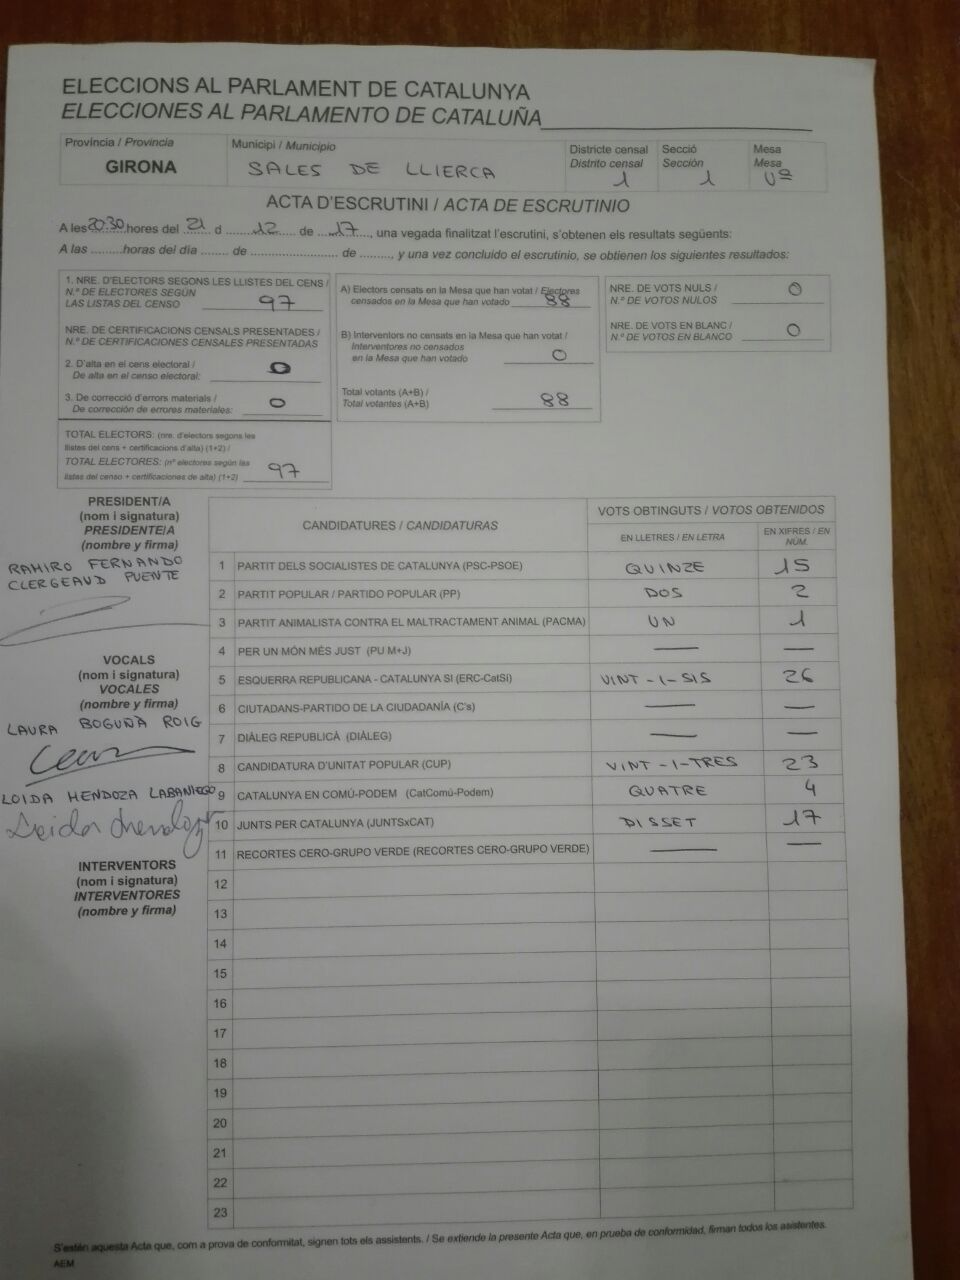 ELECCIONS AL PARLAMENT DE CATALUNYA
ELECCIONES AL PARLAMENTO DE CATALUÑA
Província / Provincia
GIRONA
Municipi / Municipio
SALES DE LLIERCA
Districte censal
Distrito censal
1
Secció
Sección
1
Mesa
Mesa
Uª
ACTA D'ESCRUTINI / ACTA DE ESCRUTINIO
A les 20:30 hores del 21 d 12 de 17, una vegada finalitzat l'escrutini, s'obtenen els resultats següents:
A las ......... horas del día ...... de ........................ de ........., y una vez concluido el escrutinio, se obtienen los siguientes resultados:
1. NRE. D'ELECTORS SEGONS LES LLISTES DEL CENS /
N.º DE ELECTORES SEGÚN
LAS LISTAS DEL CENSO 97
NRE. DE CERTIFICACIONS CENSALS PRESENTADES /
N.º DE CERTIFICACIONES CENSALES PRESENTADAS
2. D'alta en el cens electoral /
De alta en el censo electoral: 0
3. De correcció d'errors materials /
De corrección de errores materiales: 0
TOTAL ELECTORS: (nre. d'electors segons les
llistes del cens + certificacions d'alta) (1+2) /
TOTAL ELECTORES: (nº electores según las
listas del censo + certificaciones de alta) (1+2) 97
A) Electors censats en la Mesa que han votat / Electores
censados en la Mesa que han votado 88
B) Interventors no censats en la Mesa que han votat /
Interventores no censados
en la Mesa que han votado 0
Total votants (A+B) /
Total votantes (A+B) 88
NRE. DE VOTS NULS /
N.º DE VOTOS NULOS 0
NRE. DE VOTS EN BLANC /
N.º DE VOTOS EN BLANCO 0
PRESIDENT/A
(nom i signatura)
PRESIDENTE/A
(nombre y firma)
RAMIRO FERNANDO
CLERGEAUD PUENTE
VOCALS
(nom i signatura)
VOCALES
(nombre y firma)
LAURA BOGUÑÀ ROIG
LOIDA MENDOZA LABANIEGO
INTERVENTORS
(nom i signatura)
INTERVENTORES
(nombre y firma)
CANDIDATURES / CANDIDATURAS
VOTS OBTINGUTS / VOTOS OBTENIDOS
EN LLETRES / EN LETRA
EN XIFRES / EN
NÚM.
1 PARTIT DELS SOCIALISTES DE CATALUNYA (PSC-PSOE) QUINZE 15
2 PARTIT POPULAR / PARTIDO POPULAR (PP) DOS 2
3 PARTIT ANIMALISTA CONTRA EL MALTRACTAMENT ANIMAL (PACMA) UN 1
4 PER UN MÓN MÉS JUST (PU M+J) — —
5 ESQUERRA REPUBLICANA - CATALUNYA SI (ERC-CatSí) VINT-I-SIS 26
6 CIUTADANS-PARTIDO DE LA CIUDADANÍA (C's) — —
7 DIÀLEG REPUBLICÀ (DIÀLEG) — —
8 CANDIDATURA D'UNITAT POPULAR (CUP) VINT-I-TRES 23
9 CATALUNYA EN COMÚ-PODEM (CatComú-Podem) QUATRE 4
10 JUNTS PER CATALUNYA (JUNTSxCAT) DISSET 17
11 RECORTES CERO-GRUPO VERDE (RECORTES CERO-GRUPO VERDE) — —
12
13
14
15
16
17
18
19
20
21
22
23
S'estén aquesta Acta que, com a prova de conformitat, signen tots els assistents. / Se extiende la presente Acta que, en prueba de conformidad, firman todos los asistentes.
AEM